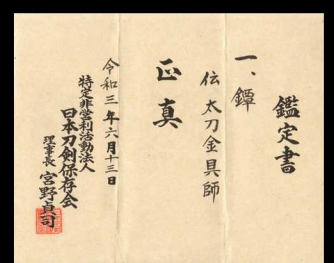 鑑定書
一、鐔
伝 太刀金具師
正真
令和三年六月十三日
特定非営利活動法人
日本刀剣保存会
理事長 宮野貞司